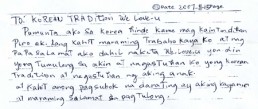 Date 2007. 8.
To KOREAN TRADITION We Love-u
Pumunta ako sa Korea hinde Kama mag kaintindihan
Pero ok lang kahit maraming trababakaya Ko at ng
Papa Salamat ako dahil nakita Ko kayo yon
yong tumulong sa akin at nagustuhan Ko yong Korean
Tradition at nagustuhan ng aking anak.
at kahit anong pagsubok na darating ay aking
at maraming Salamat sa pag Tulong.